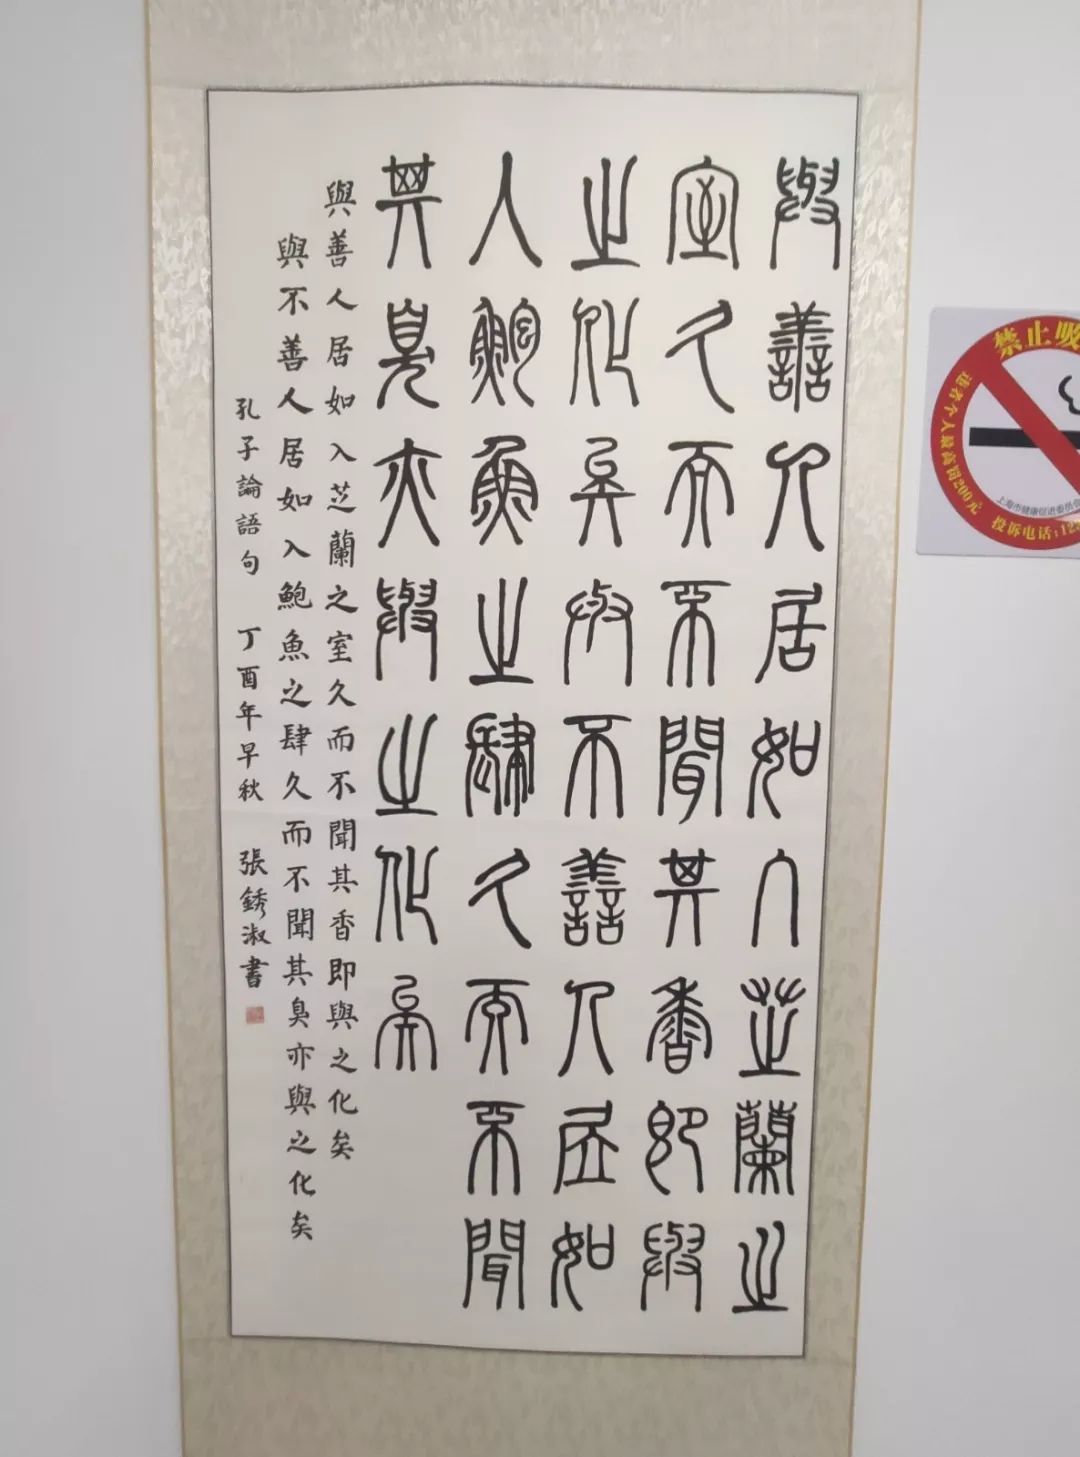 與善人居如入芝蘭之
室久而不聞其香即與
之化矣與不善人居如
入鮑魚之肆久而不聞
其臭亦與之化矣
與善人居如入芝蘭之室久而不聞其香即與之化矣
與不善人居如入鮑魚之肆久而不聞其臭亦與之化矣
孔子論語句 丁酉年早秋 張銹淑書
禁止吸
违者个人最高罚200元
上海市健康促进委员会
投诉电话:12